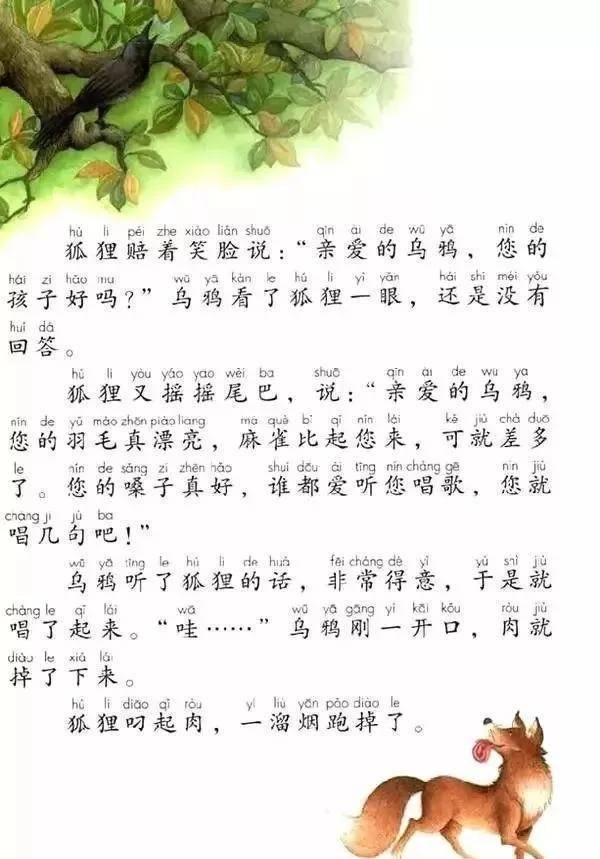 hú li péi zhe xiào liǎn shuō qīn ài de wū yā nín de
狐狸赔着笑脸说：“亲爱的乌鸦，您的
hái zi hǎo ma wū yā kàn le hú li yì yǎn hái shì méi yǒu
孩子好吗？”乌鸦看了狐狸一眼，还是没有
huí dá
回答。
hú li yòu yáo yao wěi ba shuō qīn ài de wū yā
狐狸又摇摇尾巴，说：“亲爱的乌鸦，
nín de yǔ máo zhēn piào liang má què bǐ qǐ nín lái kě jiù chà duō
您的羽毛真漂亮，麻雀比起您来，可就差多
le nín de sǎng zi zhēn hǎo shuí dōu ài tīng nín chàng gē nín jiù
了。您的嗓子真好，谁都爱听您唱歌，您就
chàng jǐ jù ba
唱几句吧！”
wū yā tīng le hú li de huà fēi cháng dé yì yú shì jiù
乌鸦听了狐狸的话，非常得意，于是就
chàng le qǐ lái wā wū yā gāng yì kāi kǒu ròu jiù
唱了起来。“哇……”乌鸦刚一开口，肉就
diào le xià lái
掉了下来。
hú li diāo qǐ ròu yí liù yān pǎo diào le
狐狸叼起肉，一溜烟跑掉了。